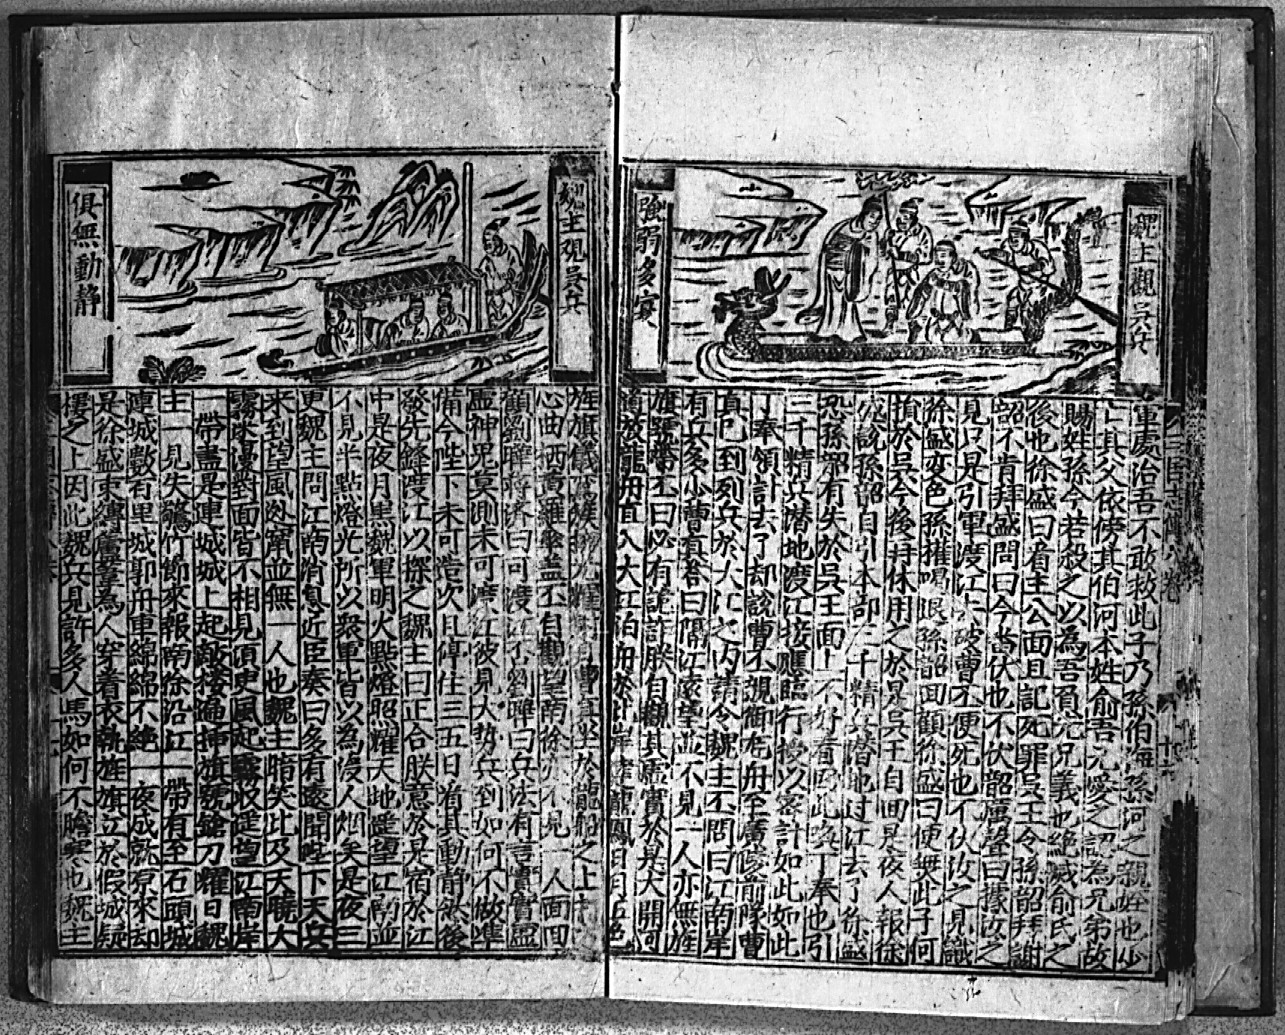 魏主觀吳兵
強弱多寡
軍處治吾不敢救此子乃孫伯海孫河之親姪也少
亡其父依傍其伯河本姓俞吾兄愛之認為兄弟故
賜姓孫今若殺之以為吾負兄義也絕滅俞民之
後也徐盛曰看主公面且記死罪吳王令孫韶拜謝
韶不肯拜盛問曰今當伏也不伏韶厲聲曰據汝之
見只是引軍渡江破曹丕便死也不伏汝之見識
徐盛变色孫權喝退孫韶回顧徐盛曰便無此子何
損於吳今後持休用之於是吳王自回是夜人報徐
盛說孫韶自引本部三千精兵潜地过江去了徐盛
恐孫韶有失於吳王面上不好看因此喚丁奉也引
三千精兵潜地渡江接應臨行授以密計如此如此
丁奉領計去了却說曹丕親御龙舟至廣陵前隊曹
真已到列兵於大江之內請令魏主丕問曰江南岸
有兵多少曹真答曰隔江遠望並不見一人亦無旌
旗號帶丕曰必有詭詐朕自觀其虛實於是大開河
道放龍舟直入大江泊舟於江岸建龍鳳日月五色
魏主現吳兵
俱無動静
旌旗儀鸞簇擁光耀射目曹丕坐於龍船之上
心曲柄黃羅傘盖丕自觀望南徐亦不見一人面回
顧劉曄蔣济曰可渡江否劉曄曰兵法有言實實虛
虛神鬼莫測未可渡江彼見大势兵到如何不做凖
備今陛下未可造次且停住三五日看其動静然後
發先鋒渡江以探之魏主曰正合朕意於是宿於江
中是夜月黑魏軍明火點燈照耀天地遥望江南並
不見半點燈光所以衆軍皆以為没人烟矣是夜三
更魏主問江南消息近臣奏曰多有遠聞陛下天兵
來到望風逃竄並無一人也魏主暗笑比及天曉大
霧迷漫對面皆不相見須臾風起霧收遥望江南岸
一帶盡是連城城上起敵楼遍插旗號鎗刀耀日魏
主一見失驚竹節來報南徐沿江一帶有至石頭城
連城數百里城郭舟車綿綿不絶一夜成就原來却
是徐盛束縳蘆葦為人穿着衣執旌旗立於假城疑
樓之上因此魏兵見許多人馬如何不膽寒也魏主